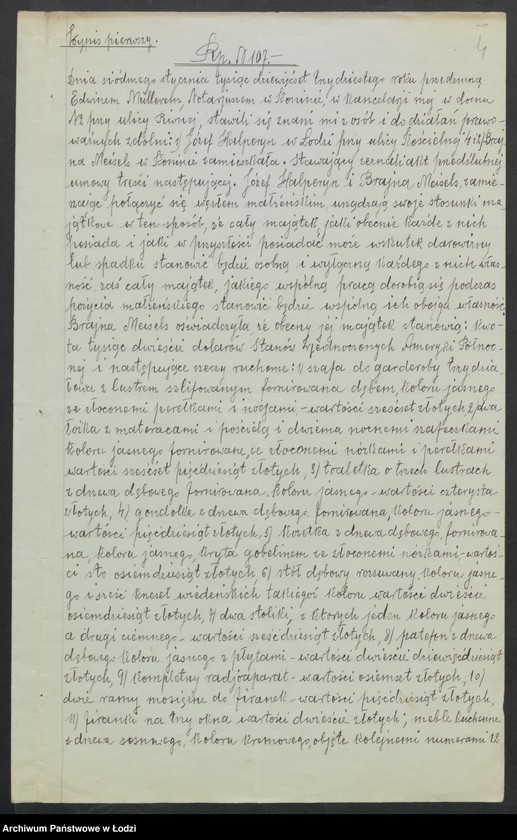 Wypis pierwszy.
4
Rp. № 107.-
Dnia siódmego stycznia tysiąc dziewięćset trzydziestego roku przedemną
Edwinem Müllerem, Notarjuszem w Koninie, w Kancelarji mej w domu
№ przy ulicy stawili się znani mi z osób i do działań prawo-
ważnych zdolni: 1) Józef Halperyn w Łodzi przy ulicy Kościelnej 4 i 2) Braj-
na Meisels w Koninie zamieszkała. Stawający zeznali akt przedślubnej
umowy treści następującej. Józef Halperyn i Brajna Meisels, zamie-
rzając połączyć się węzłem małżeńskim urządzają swoje stosunki ma-
jątkowe w ten sposób, że cały majątek, jaki obecnie każde z nich
posiada i jaki w przyszłości posiadać może wskutek darowizny
lub spadku stanowić będzie osobną i wyłączną każdego z nich włas-
ność, zaś cały majątek, jakiego wspólną pracą dorobią się podczas
pożycia małżeńskiego stanowić będzie wspólną ich obojga własność.
Brajna Meisels oświadczyła, że obecny jej majątek stanowią: kwo-
ta tysiąc dwieście dolarów Stanów Zjednoczonych Ameryki Północ-
nej i następujące rzeczy ruchome: 1) szafa do garderoby trzydrzia
łowa z lustrem szlifowanym fornirowana dębem, koloru jasnego
ze złoconemi perełkami i nogami - wartości sześćset złotych, 2) dwa
łóżka z materacami i pościelą i dwiema nocnemi szafeczkami
koloru jasnego fornirowane, ze złoconemi nóżkami i perełkami
wartości sześćset pięćdziesiąt złotych, 3) toaletka o trzech lustrach
z drzewa dębowego fornirowana, koloru jasnego - wartości czterysta
złotych, 4) gondolka z drzewa dębowego, fornirowana, koloru jasnego -
wartości pięćdziesiąt złotych, 5) kozetka z drzewa dębowego, fornirowa-
na, koloru jasnego, kryta gobelinem ze złoconemi nóżkami - wartoś-
ci sto osiemdziesiąt złotych, 6) stół dębowy rozsuwany, koloru jasne-
go i sześć krzeseł wiedeńskich takiegoż koloru wartości dwieście
osiemdziesiąt złotych, 7) dwa stoliki, z których jeden koloru jasnego
a drugi ciemnego - wartości sześćdziesiąt złotych, 8) patefon z drzewa
dębowego koloru jasnego z płytami - wartości dwieście dziewięćdziesiąt
złotych, 9) kompletny radjoaparat - wartości osiemset złotych, 10)
dwie ramy mosiężne do firanek - wartości pięćdziesiąt złotych,
11) firanki na trzy okna wartości dwieście złotych; meble kuchenne
z drzewa sosnowego, koloru kremowego, objęte kolejnemi numerami 12
Archiwum Państwowe w Łodzi